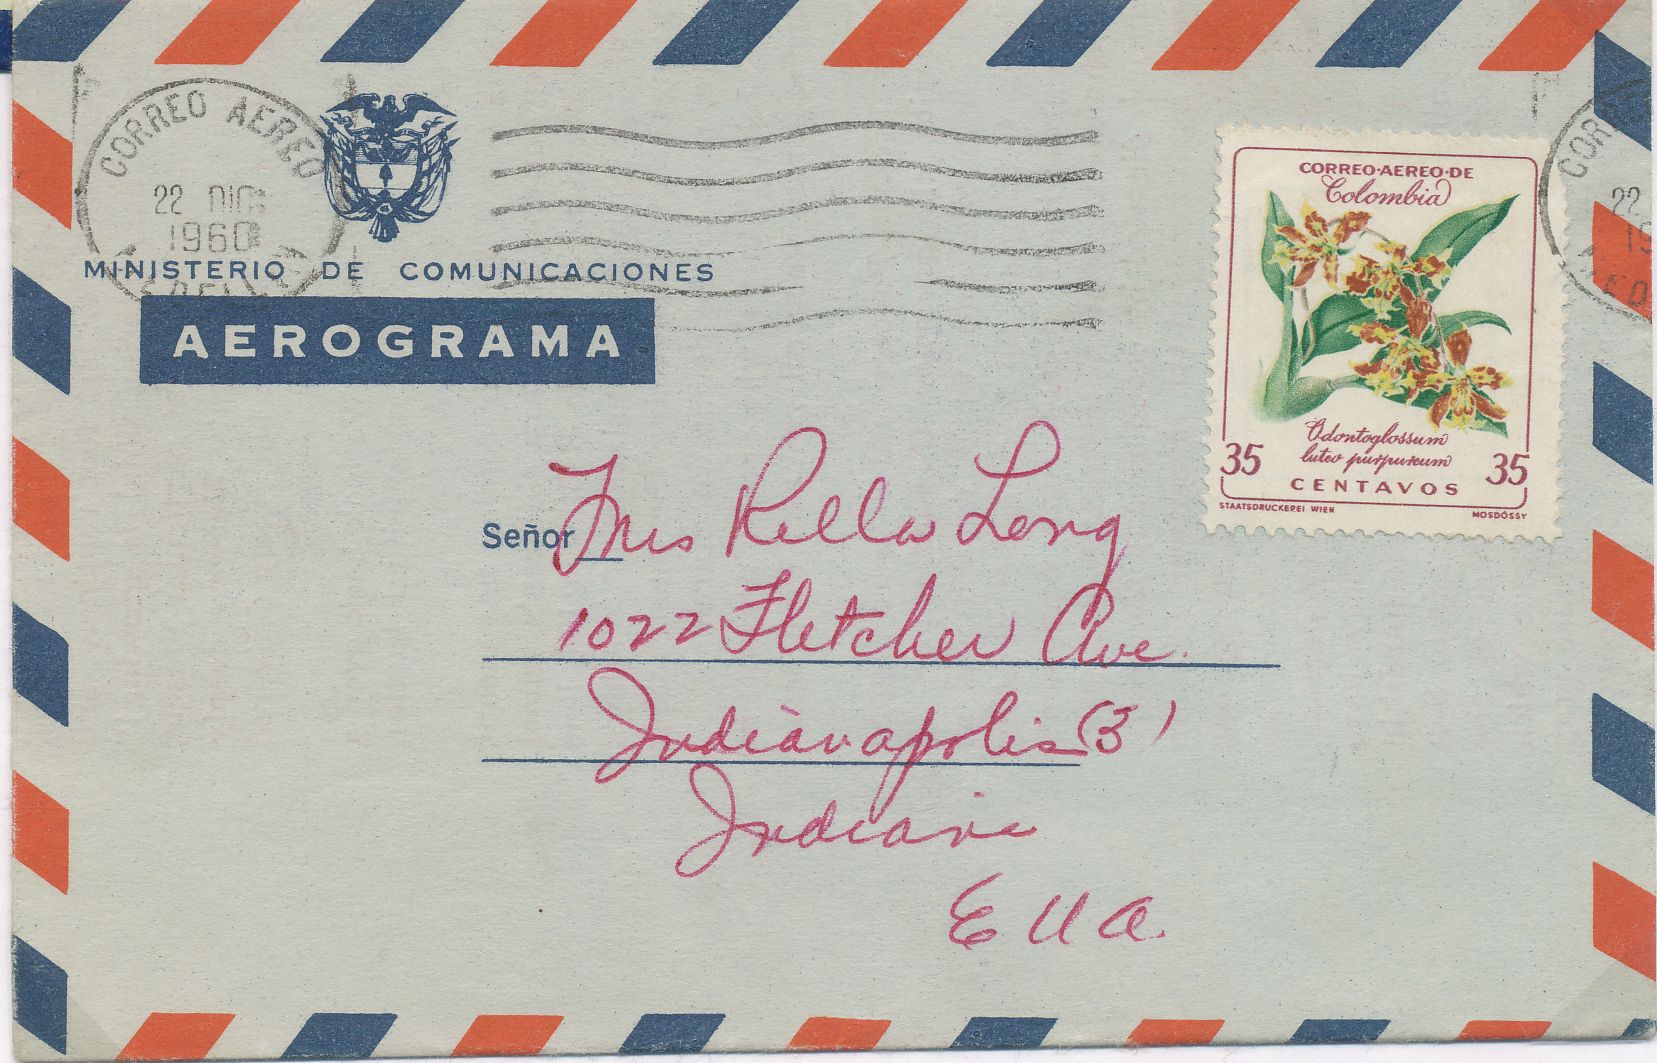 CORREO AEREO
22 DIC
1960
MEDELLIN
MINISTERIO DE COMUNICACIONES
AEROGRAMA
CORREO·AEREO·DE
Colombia
Odontoglossum
luteo purpureum
35 CENTAVOS 35
STAATSDRUCKEREI WIEN
MOSDÓSSY
COR
22
19
MED
Señor Mrs Rella Long
1022 Fletcher Ave.
Indianapolis (3)
Indiana
E U A.